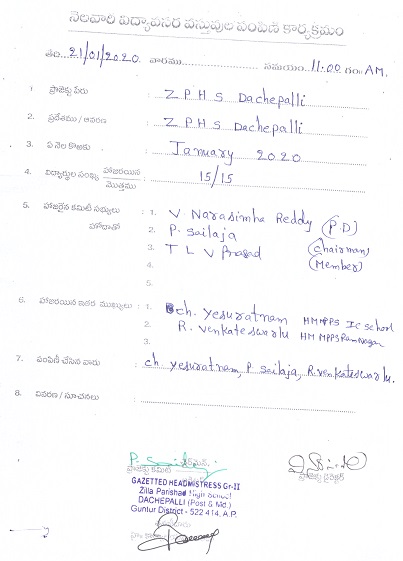 నెలవారి విద్యావసర వస్తువుల పంపిణి కార్యక్రమం
తేది: 21/01/2020 వారము సమయం 11:00 గం AM.
1 ప్రాజెక్టు పేరు : Z P H S Dachepalli
2. ప్రదేశము / ఆవరణ : Z P H S Dachepalli
3. ఏ నెల కొఱకు : January 2020
4. విద్యార్థుల సంఖ్య హాజరయిన / మొత్తము : 15/15
5. హాజరైన కమిటి సభ్యులు : 1. V. Narasimha Reddy (P.D)
హోదాతో 2. P. Sailaja (Chairman)
3. T L V Prasad (Member)
4.
5.
6. హాజరయిన ఇతర ముఖ్యులు : 1. ch. Yesuratnam HM MPPS Ic School
2. R. Venkateswarlu HM MPPS RamNagar
3.
7. పంపిణీ చేసిన వారు : ch yesuratnam, P Sailaja, R. Venkateswarlu.
8. వివరణ / సూచనలు :
P. Sailaja
ప్రాజెక్టు కమిటి ప్రాజెక్టు డైరక్టర్
GAZETTED HEADMISTRESS Gr-II
Zilla Parishad High School
DACHEPALLI (Post & Md.)
Guntur District - 522 414. A.P.